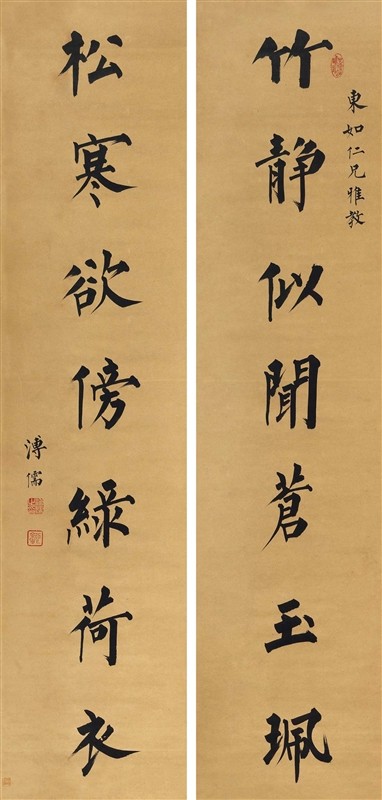 東如仁兄雅教
竹靜似聞蒼玉珮
松寒欲傍綠荷衣
溥儒